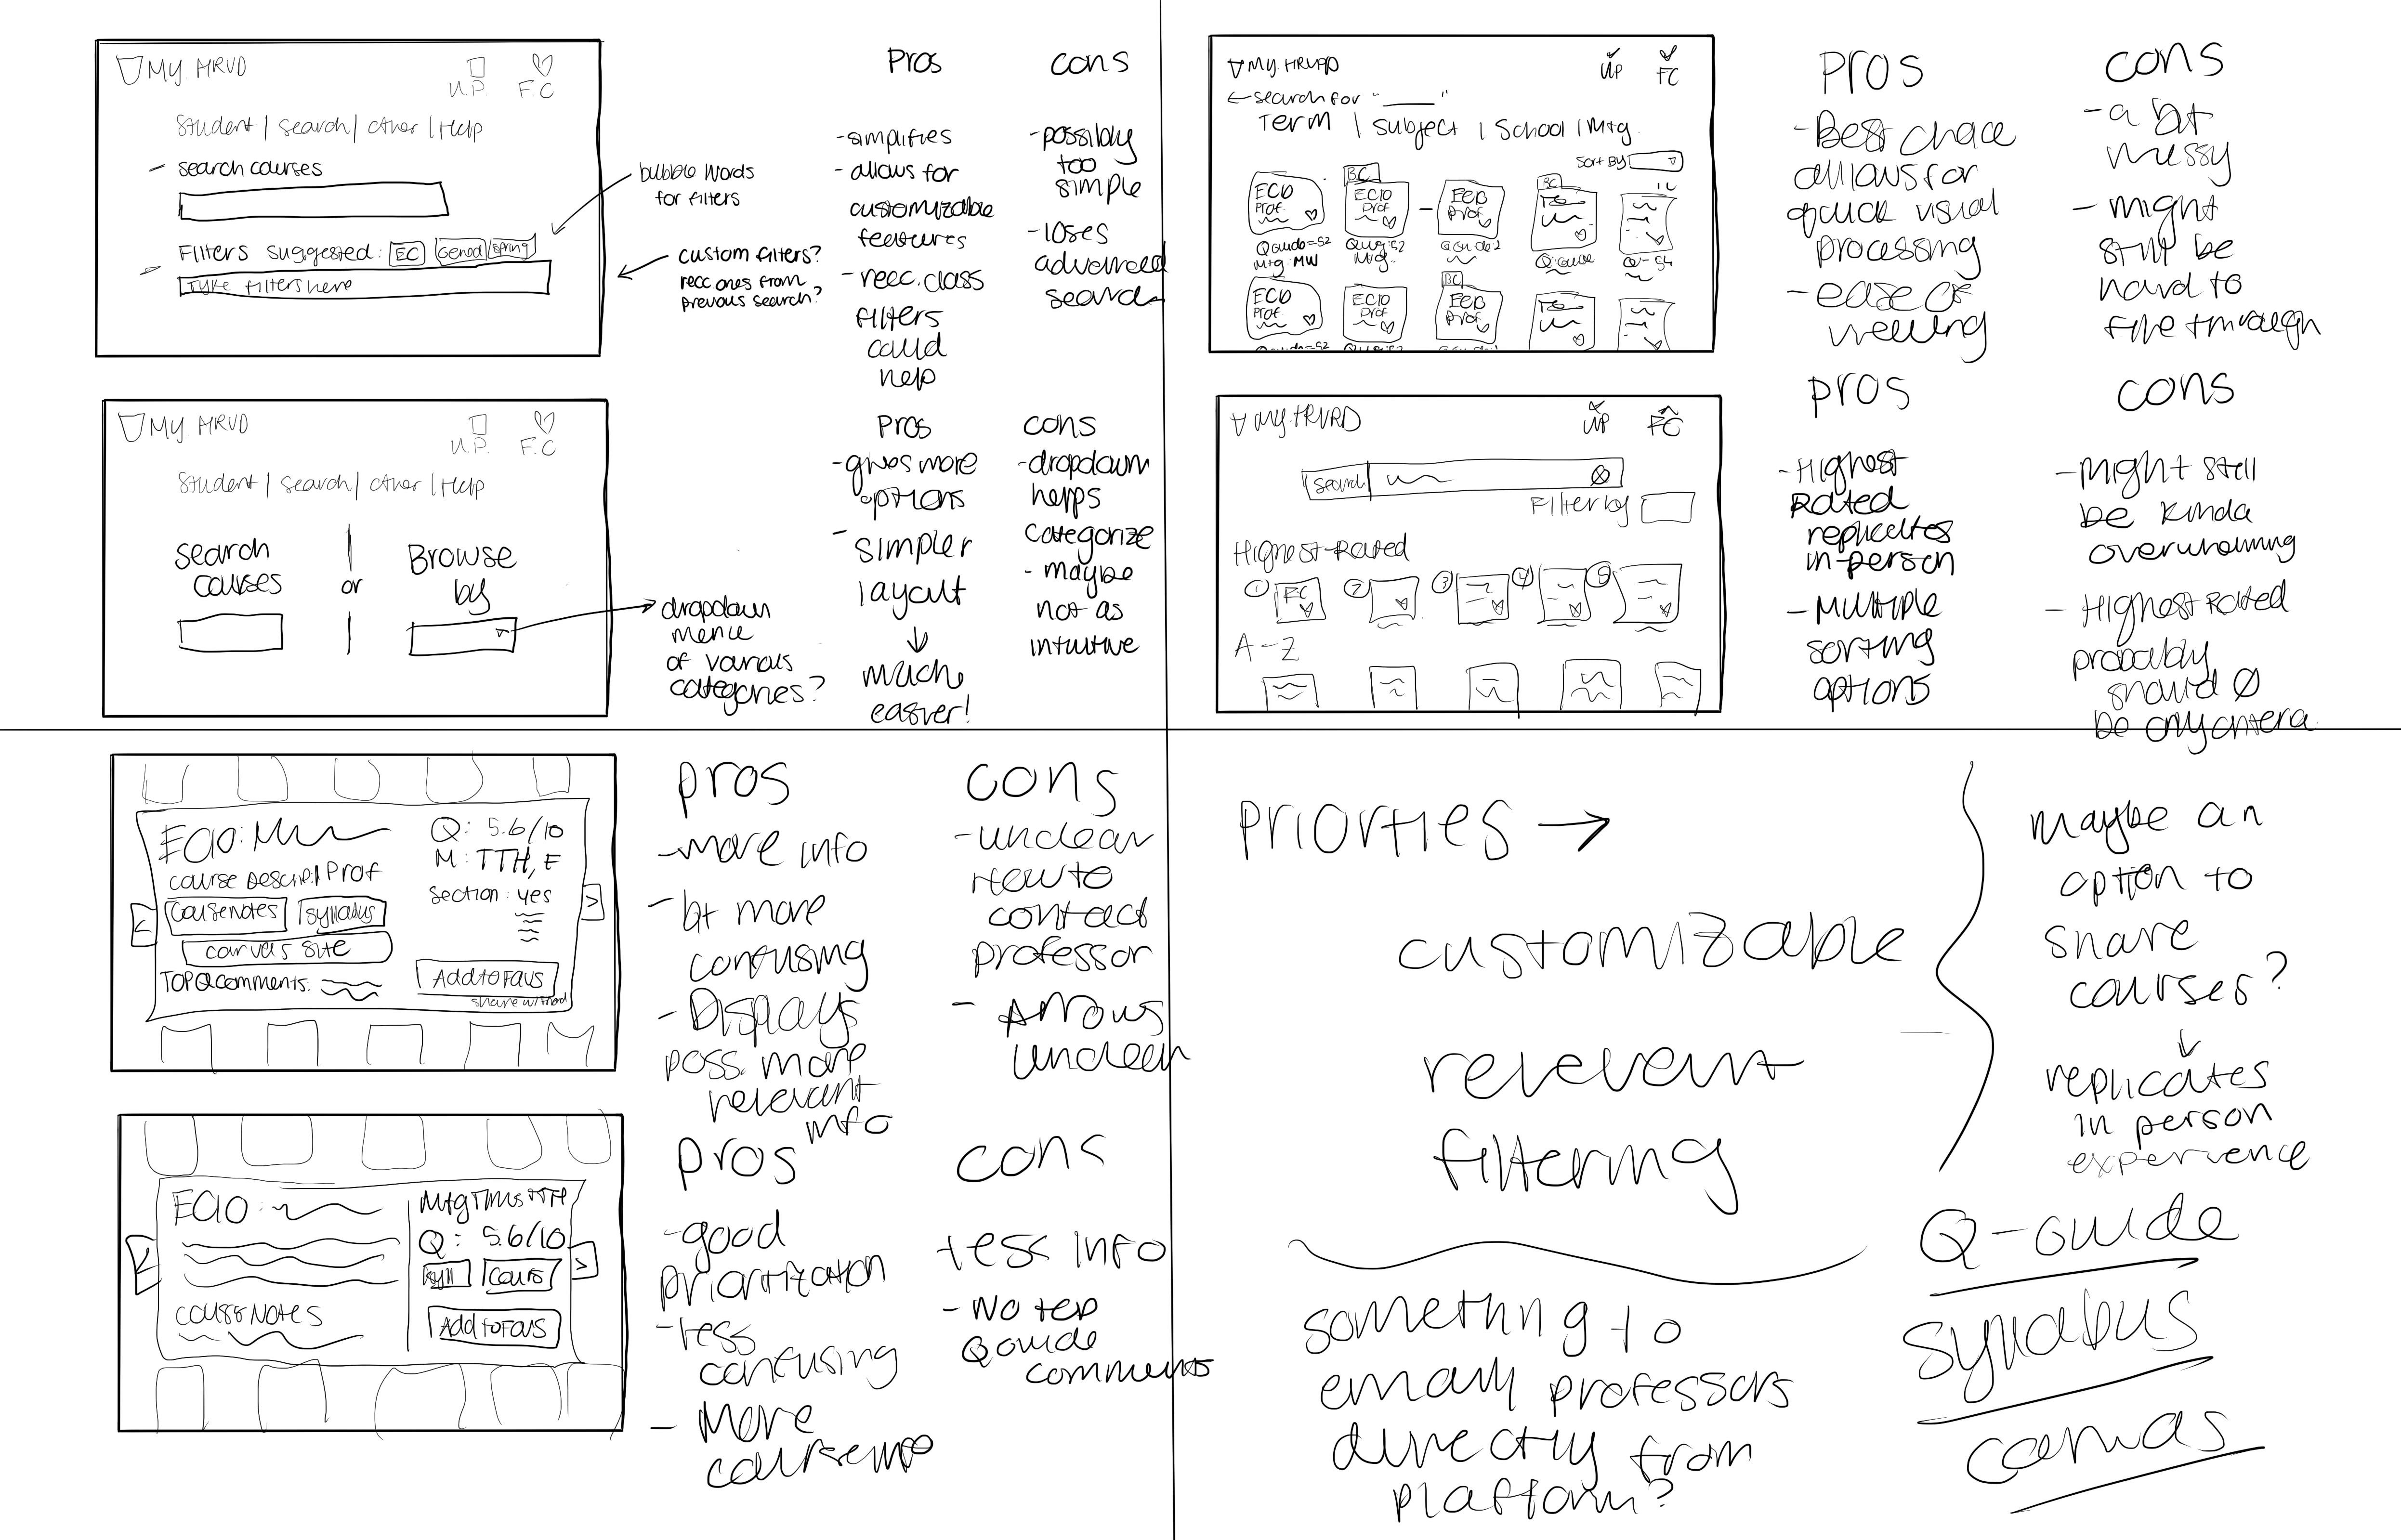 My. HRVD
U.P.
F.C
Student | Search | Other | Help
- search courses
Filters suggested: EC Gened Spring
Type filters here
bubble words
for filters
custom filters?
recc ones from
previous search?
Pros
- simplifies
- allows for
customizable
features
- recc. class
filters
could
help
cons
- possibly
too
simple
- loses
advanced
search
My. HRVD
U.P.
F.C
Student | Search | Other | Help
search
courses
or
Browse
by
dropdown
menu
of various
categories?
Pros
- gives more
options
- simpler
layout
↓
much
easier!
cons
- dropdown
helps
categorize
- maybe
not as
intuitive
My. HRVRD
UP
FC
← search for "____"
Term | Subject | School | Mtg.
Sort By
EC10
Prof.
BC
EC10
Prof
EC10
Prof.
BC
Mtg: MW
EC10
Prof.
EC10
Prof
BC
Pros
- Best choice
allows for
quick visual
processing
- ease of
viewing
cons
- a bit
messy
- might
still be
hard to
file through
My. HRVRD
UP
FC
search
Filter by
Highest-Rated
1 EC
2
3
4
5
A-Z
Pros
- Highest
Rated
replicates
in-person
- Multiple
sorting
options
cons
- Might still
be kinda
overwhelming
- Highest Rated
probably
should Ø
be only criteria
EC10:
Q: 5.6/10
M: TTH, F
course Descrip. | Prof
Section: yes
Course notes
syllabus
canvas site
TOP Q comments:
Add to Favs
share w/ friend
<
>
pros
- more info
- bit more
confusing
- Displays
poss. more
relevant
info
cons
- unclear
how to
contact
professor
- Arrows
unclear
EC10:
Mtg Times TTH
Q: 5.6/10
syll
Add to Favs
course Notes
<
>
pros
- good
prioritization
- less
confusing
- More
course info
cons
- less info
- No top
Q guide
comments
priorities →
customizable
relevant
filtering
something to
email professors
directly from
platform?
maybe an
option to
share
courses?
↓
replicates
in person
experience
Q-Guide
syllabus
canvas